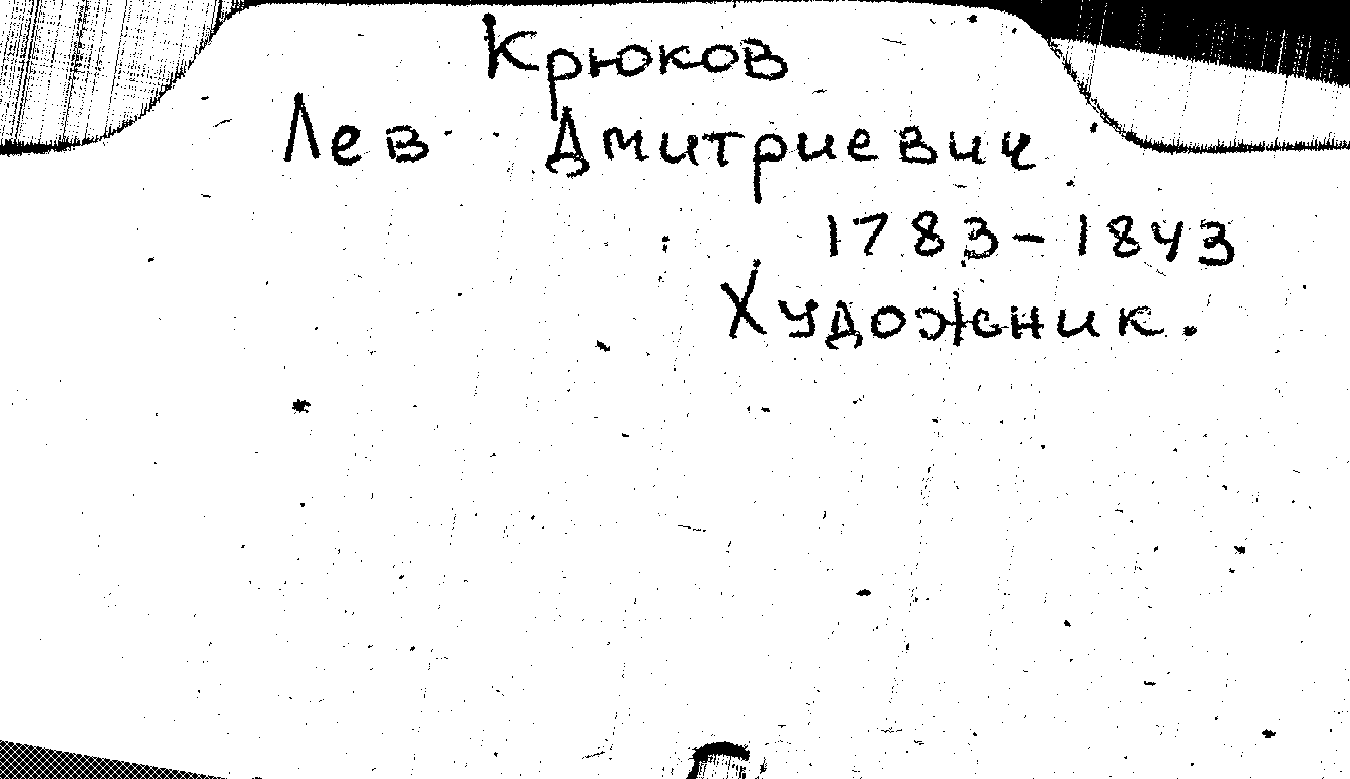 Крюков
Лев Дмитриевич
1783-1843
Художник.